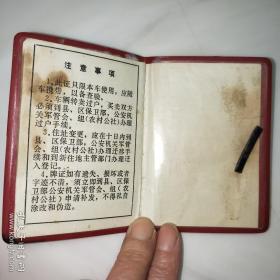 注意事项
1.此证只限本车使用，应随
车携带，以备查验。
2.车辆转卖过户，买卖双方
必须到县、区保卫部、公安机
关军管会、组（农村公社）办理
过户手续。
3.住址变更，应在十日内到
县、区保卫部、公安机关军管
会、组（农村公社）办理迁移手
续和到新住地主管部门办理迁
入登记。
4.牌证如有遗失、损坏或者
字迹不清，须立即到县、区保
卫部公安机关军管会、组（农
村公社）申请补发，不得私自
涂改和伪造。